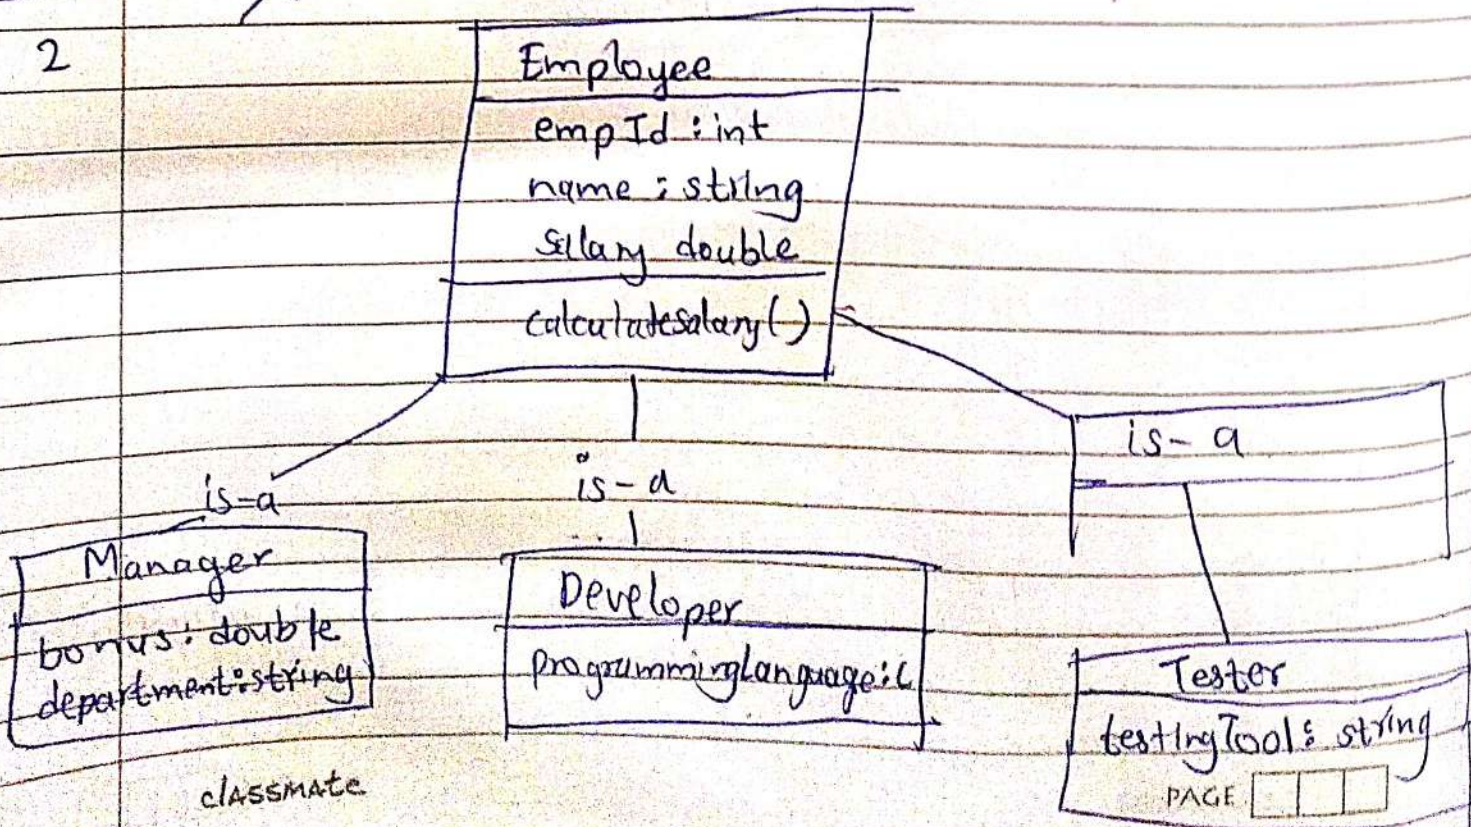 2
Employee
empId : int
name : string
Sallary double
calculatesalary()
is-a
is-a
is-a
Manager
bonus: double
department: string
Developer
programmingLanguage: (
Tester
testingTool: string
classmate
PAGE